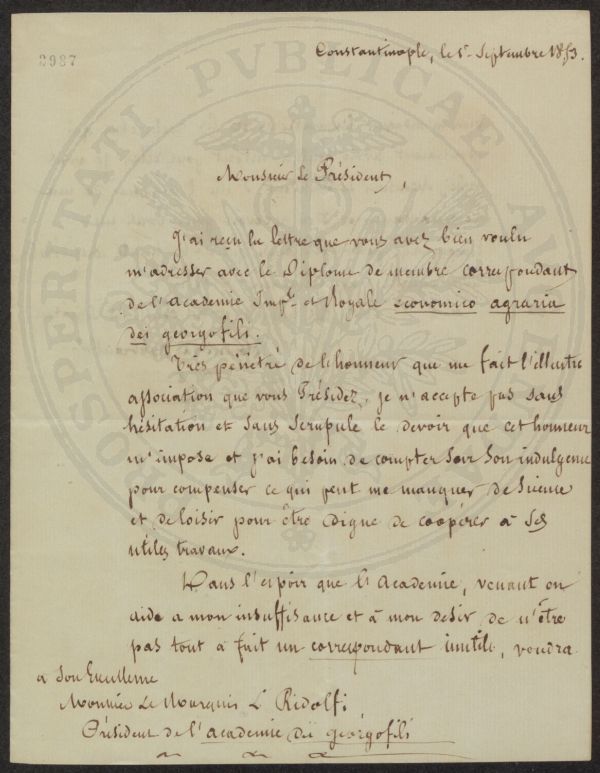 2987
Constantinople, le 1er Septembre 1853.
PROSPERITATI PUBLICAE AUGENDAE
Monsieur Le Président,
J'ai reçu la lettre que vous avez bien voulu
m'adresser avec le Diplome de membre correspondant
de l'Academie Imple et Royale economico agraria
dei georgofili.
Très pénétré de l'honneur que me fait l'illustre
association que vous Présidez, je n'accepte pas sans
hésitation et sans scrupule le devoir que cet honneur
m'impose et j'ai besoin de compter sur son indulgence
pour compenser ce qui peut me manquer de science
et de loisir pour être digne de coopérer à ses
utiles travaux.
Dans l'espoir que l'Academie, venant en
aide a mon insuffisance et à mon desir de n'être
pas tout à fait un correspondant inutile, voudra
a Son Excellence
Monsieur Le Marquis L. Ridolfi
Président de l'academie dei georgofili